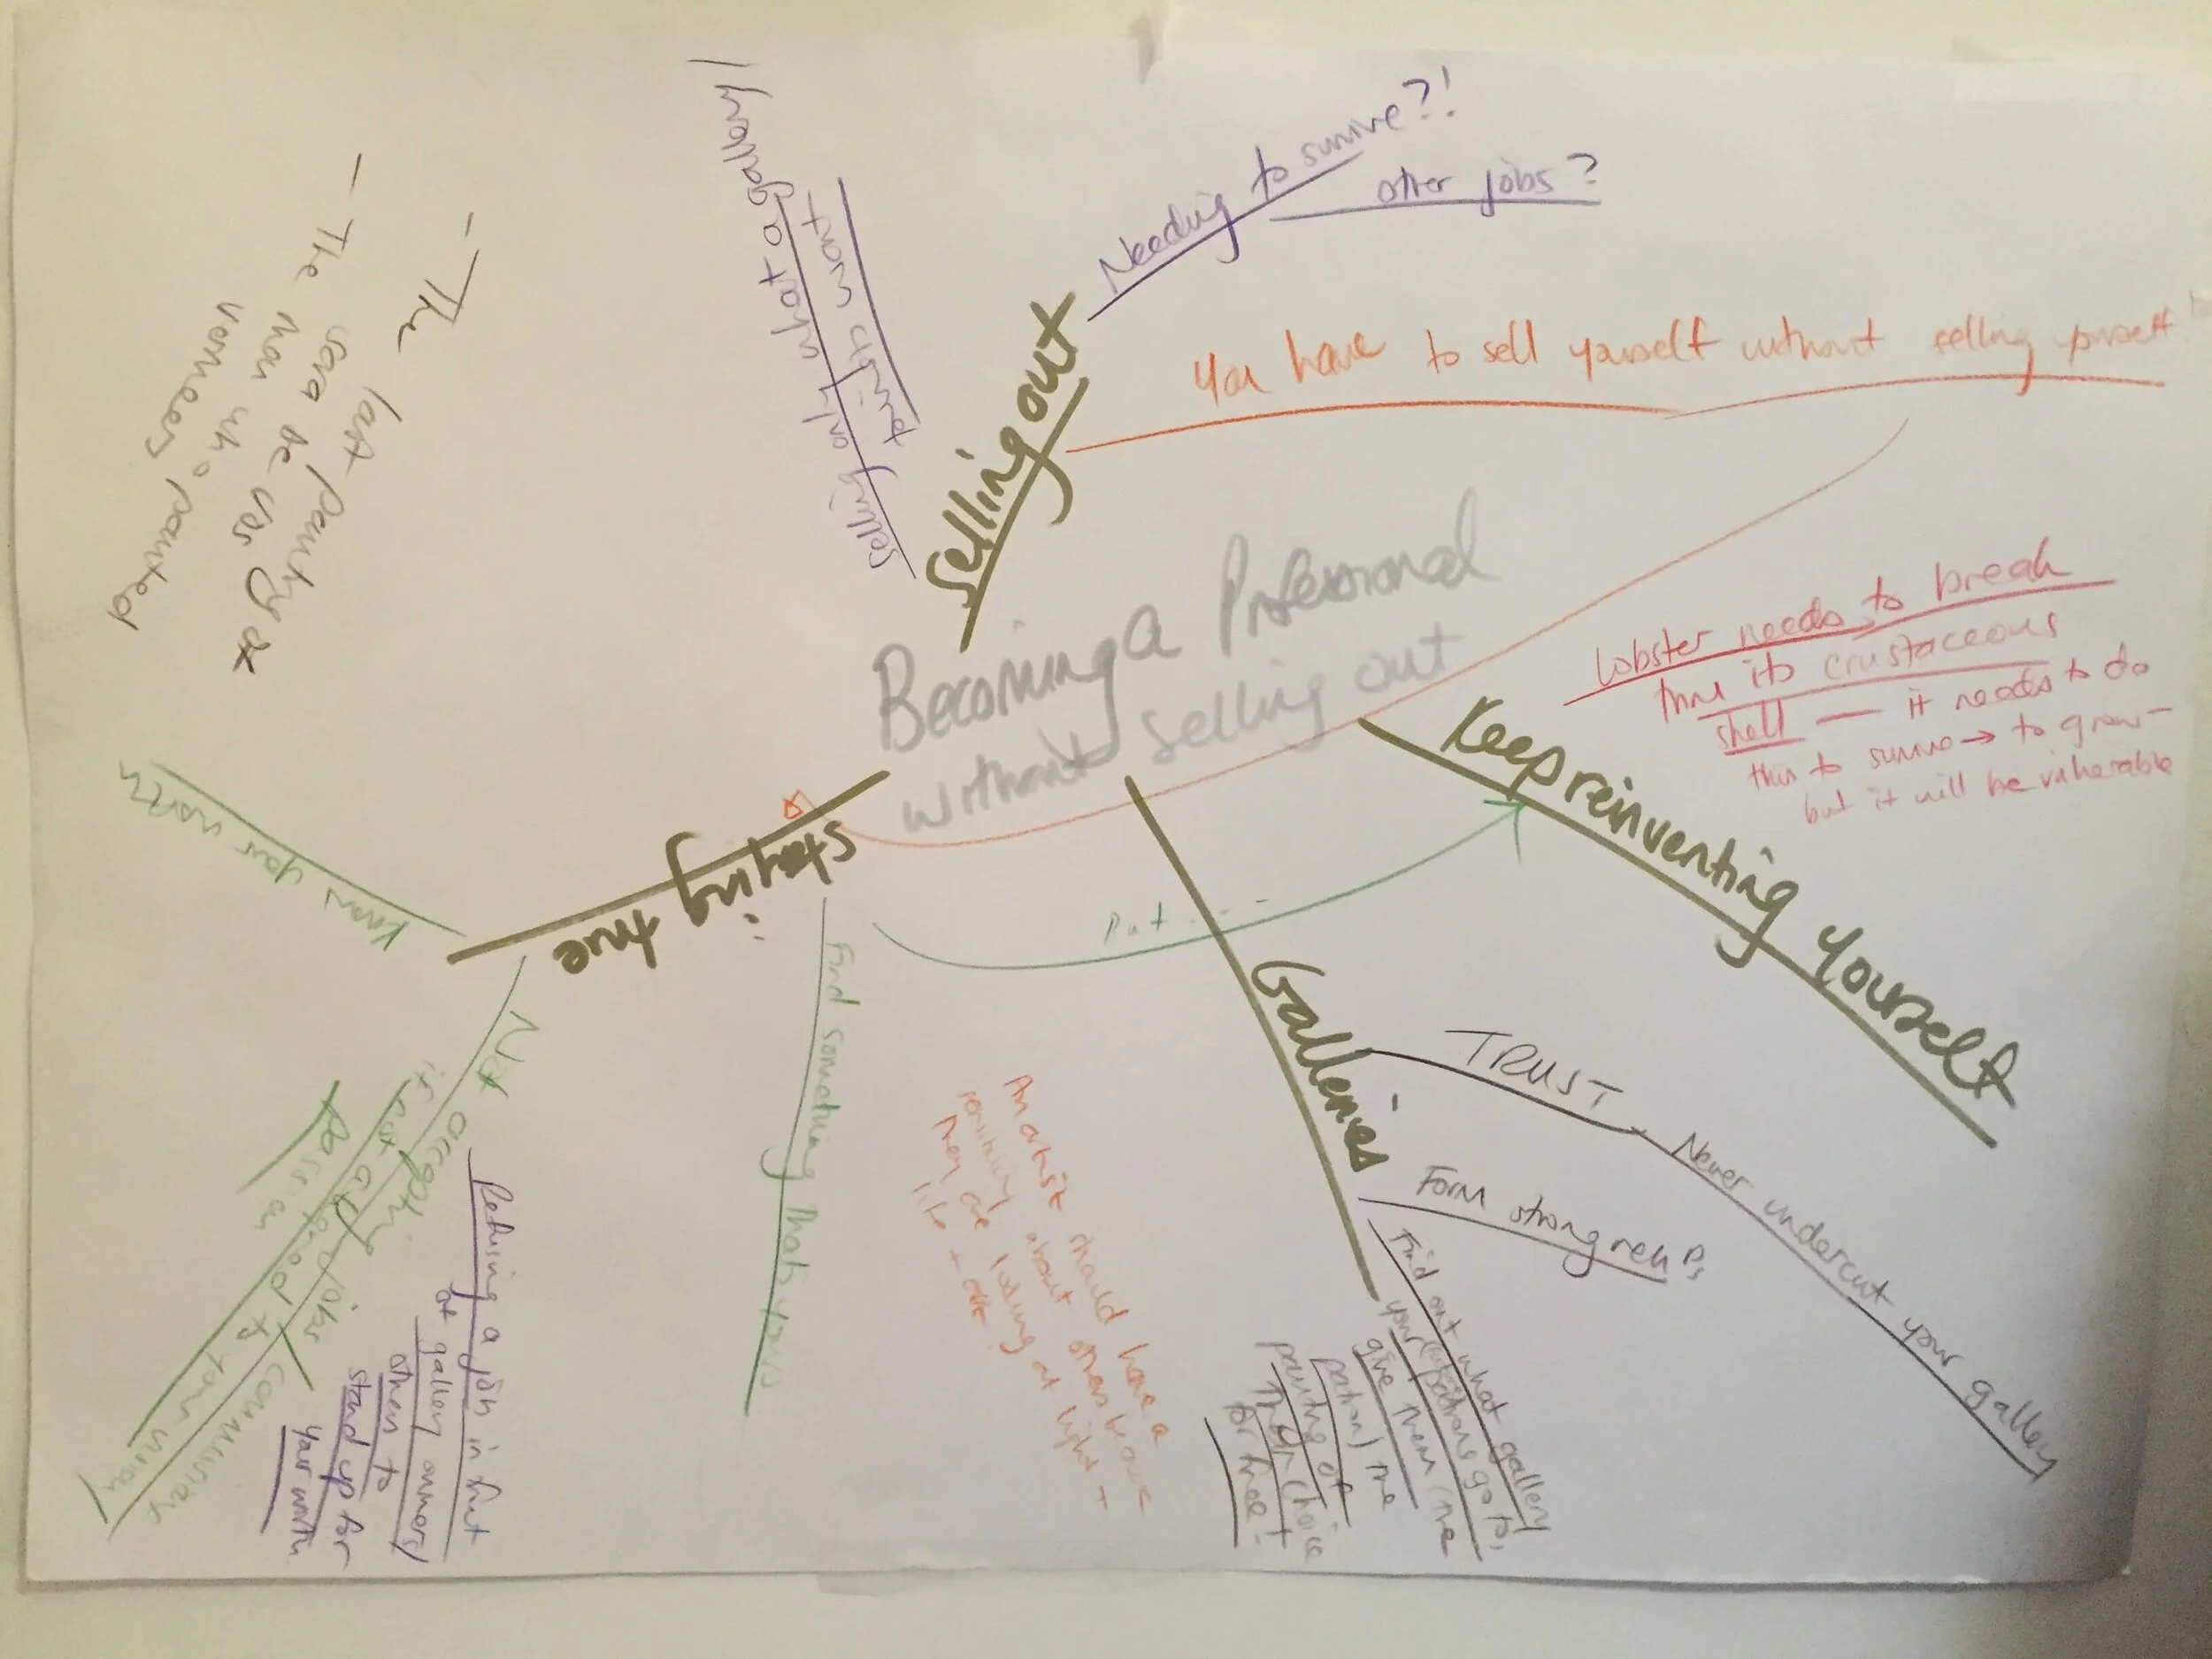 Becoming a Professional
without selling out
selling out
Needing to survive?!
other jobs?
You have to sell yourself without selling yourself!
selling only what a gallery/
tourists want
Keep reinventing yourself
lobster needs to break
thru its crustaceous
shell — it needs to do
this to survive → to grow –
but it will be vulnerable
Galleries
TRUST
Never undercut your gallery
Form strong reln Ps
Find out what gallery
your patrons go to,
give them (the
patron) the
painting of
their choice
for free!
staying true
Find something that's yours
But - - -
An artist should have a
sensitivity about others because
they are looking at light +
life +
know your worth
Not accepting jobs / commissions
if not aligned to your vision /
passion
Refusing a job in front
of gallery owners/
others to
stand up for
your worth
– The last painting
– The
man who painted